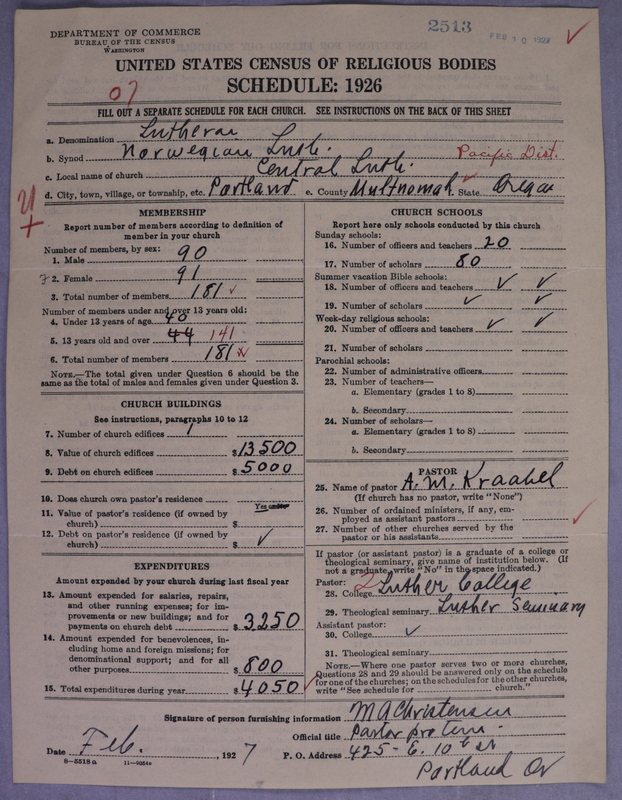 2513
FEB 10 1927
DEPARTMENT OF COMMERCE
BUREAU OF THE CENSUS
WASHINGTON
UNITED STATES CENSUS OF RELIGIOUS BODIES
SCHEDULE: 1926
07
FILL OUT A SEPARATE SCHEDULE FOR EACH CHURCH. SEE INSTRUCTIONS ON THE BACK OF THIS SHEET
a. Denomination Lutheran
b. Synod Norwegian Luth. Pacific Dist.
c. Local name of church Central Luth.
d. City, town, village, or township, etc. Portland e. County Multnomah f. State Oregon
MEMBERSHIP
Report number of members according to definition of
member in your church
Number of members, by sex:
1. Male 90
2. Female 91
3. Total number of members 181 ✓
Number of members under and over 13 years old:
4. Under 13 years of age 40
5. 13 years old and over 44 141
6. Total number of members 181
NOTE.—The total given under Question 6 should be the
same as the total of males and females given under Question 3.
CHURCH BUILDINGS
See instructions, paragraphs 10 to 12
7. Number of church edifices 1
8. Value of church edifices $13500
9. Debt on church edifices $5000
10. Does church own pastor's residence
11. Value of pastor's residence (if owned by
church) $
12. Debt on pastor's residence (if owned by
church) $ ✓
EXPENDITURES
Amount expended by church during last fiscal year
13. Amount expended for salaries, repairs,
and other running expenses; for im-
provements or new buildings; and for
payments on church debt $3250
14. Amount expended for benevolences, in-
cluding home and foreign missions; for
denominational support; and for all
other purposes $800
15. Total expenditures during year $4050 ✓
CHURCH SCHOOLS
Report here only schools conducted by this church
Sunday schools:
16. Number of officers and teachers 20
17. Number of scholars 80
Summer vacation Bible schools:
18. Number of officers and teachers ✓ ✓
19. Number of scholars ✓ ✓
Week-day religious schools:
20. Number of officers and teachers ✓ ✓
21. Number of scholars
Parochial schools:
22. Number of administrative officers
23. Number of teachers—
a. Elementary (grades 1 to 8)
b. Secondary
24. Number of scholars—
a. Elementary (grades 1 to 8)
b. Secondary
PASTOR
25. Name of pastor A. M. Kraabel
(If church has no pastor, write "None")
26. Number of ordained ministers, if any, em-
ployed as assistant pastors
27. Number of other churches served by the
pastor or his assistants
If pastor (or assistant pastor) is a graduate of a college or
theological seminary, give name of institution below. (If
not a graduate, write "No" in the space indicated.)
Pastor:
28. College Luther College
29. Theological seminary Luther Seminary
Assistant pastor:
30. College ✓
31. Theological seminary
NOTE.—Where one pastor serves two or more churches,
Questions 28 and 29 should be answered only on the schedule
for one of the churches; on the schedules for the other churches,
write "See schedule for church."
Signature of person furnishing information M A Christensen
Official title Pastor pro tem.
Date Feb. , 1927 P. O. Address 425 - E. 10th St
Portland Or
8—5518a 11—9064